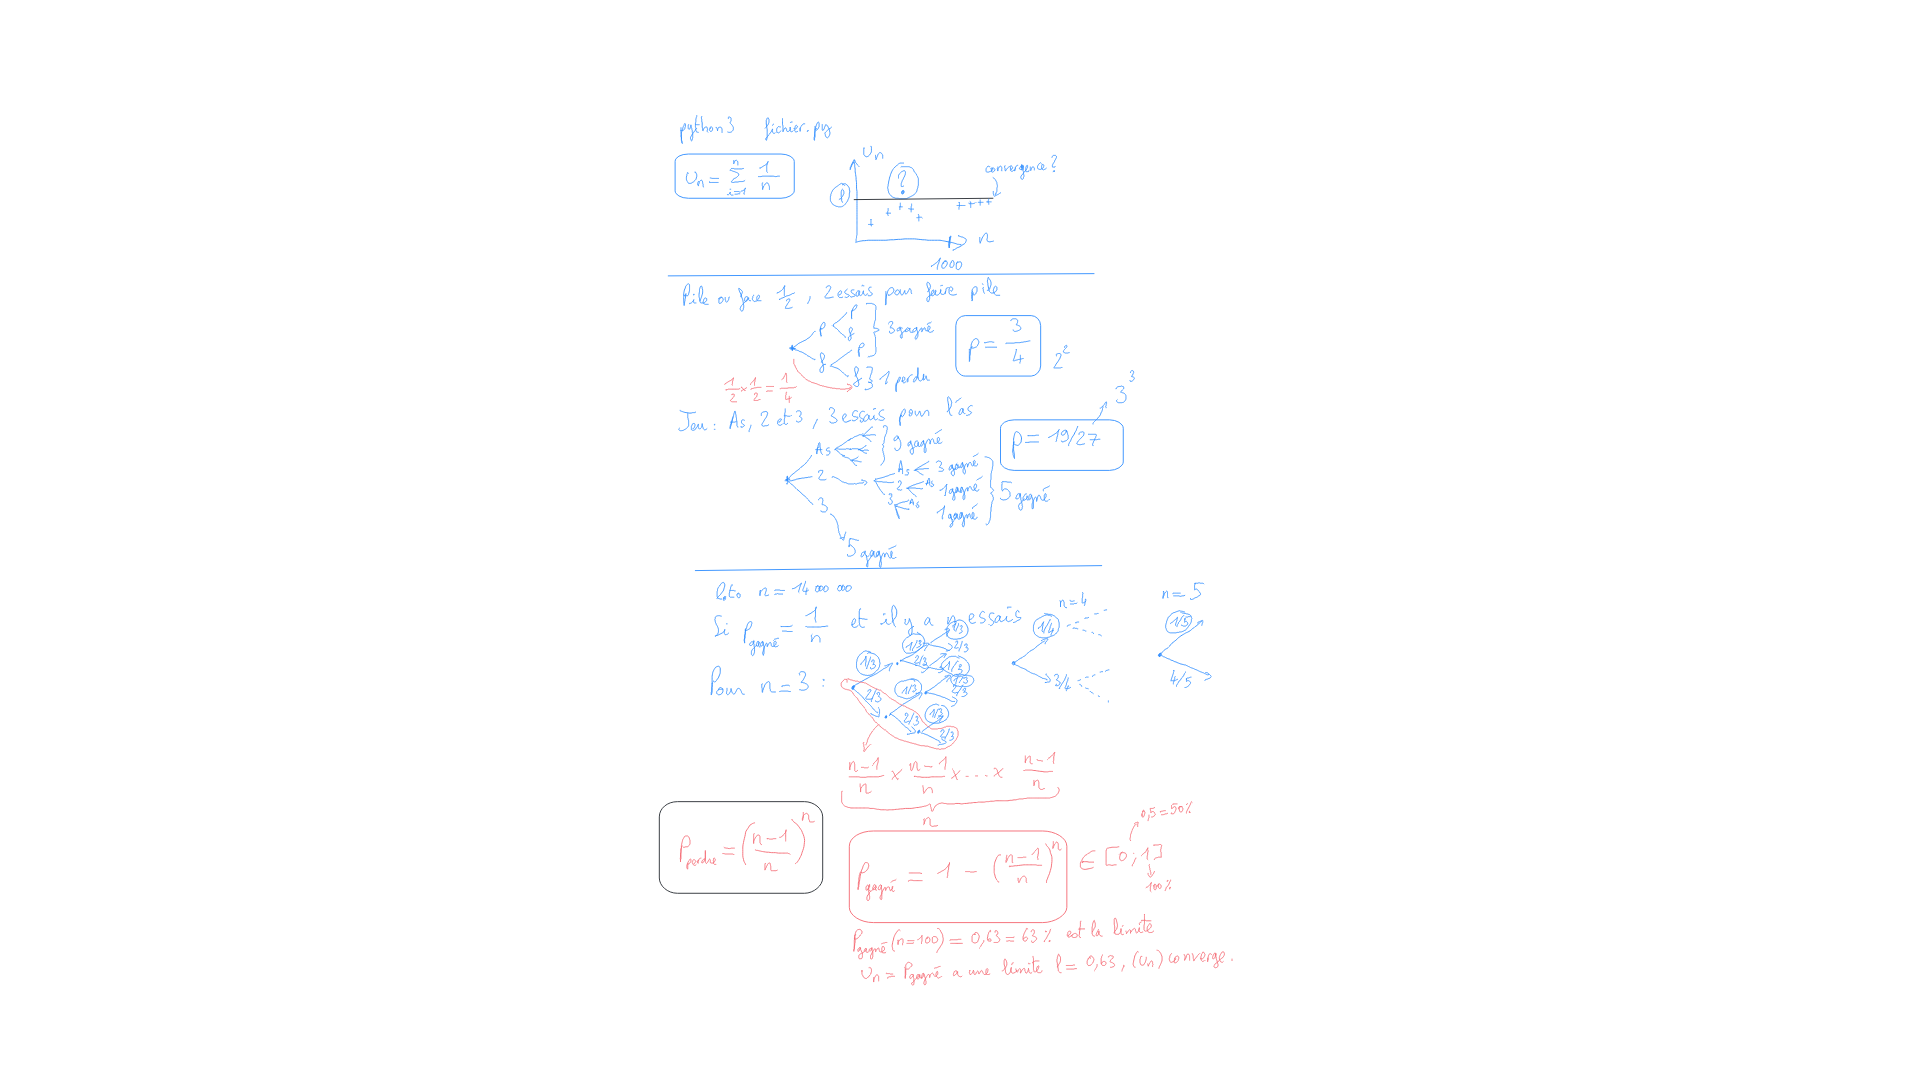 python3 fichier.py
Un = n Σ i=1 1/n
Un
?
convergence?
l
n
1000
Pile ou face 1/2, 2 essais pour faire pile
p
p
f
3 gagné
f
p
f
1 perdu
1/2 × 1/2 = 1/4
p = 3/4
2²
3³
Jeu : As, 2 et 3, 3 essais pour l'as
p = 19/27
As
9 gagné
2
As 3 gagné
2 As 1 gagné
3 As 1 gagné
5 gagné
3
5 gagné
loto n = 14 000 000
n = 4
n = 5
Si Pgagné = 1/n et il y a n essais
1/4
3/4
1/5
4/5
Pour n = 3 :
1/3 1/3 1/3
2/3
2/3 1/3
2/3 1/3 1/3
2/3
2/3 1/3
2/3
n-1/n × n-1/n × ... × n-1/n
n
Pperdre = (n-1/n)^n
Pgagné = 1 - (n-1/n)^n ∈ [0,1]
0,5 = 50%
100%
Pgagné (n=100) = 0,63 = 63% est la limite
Un = Pgagné a une limite l = 0,63, (Un) converge.